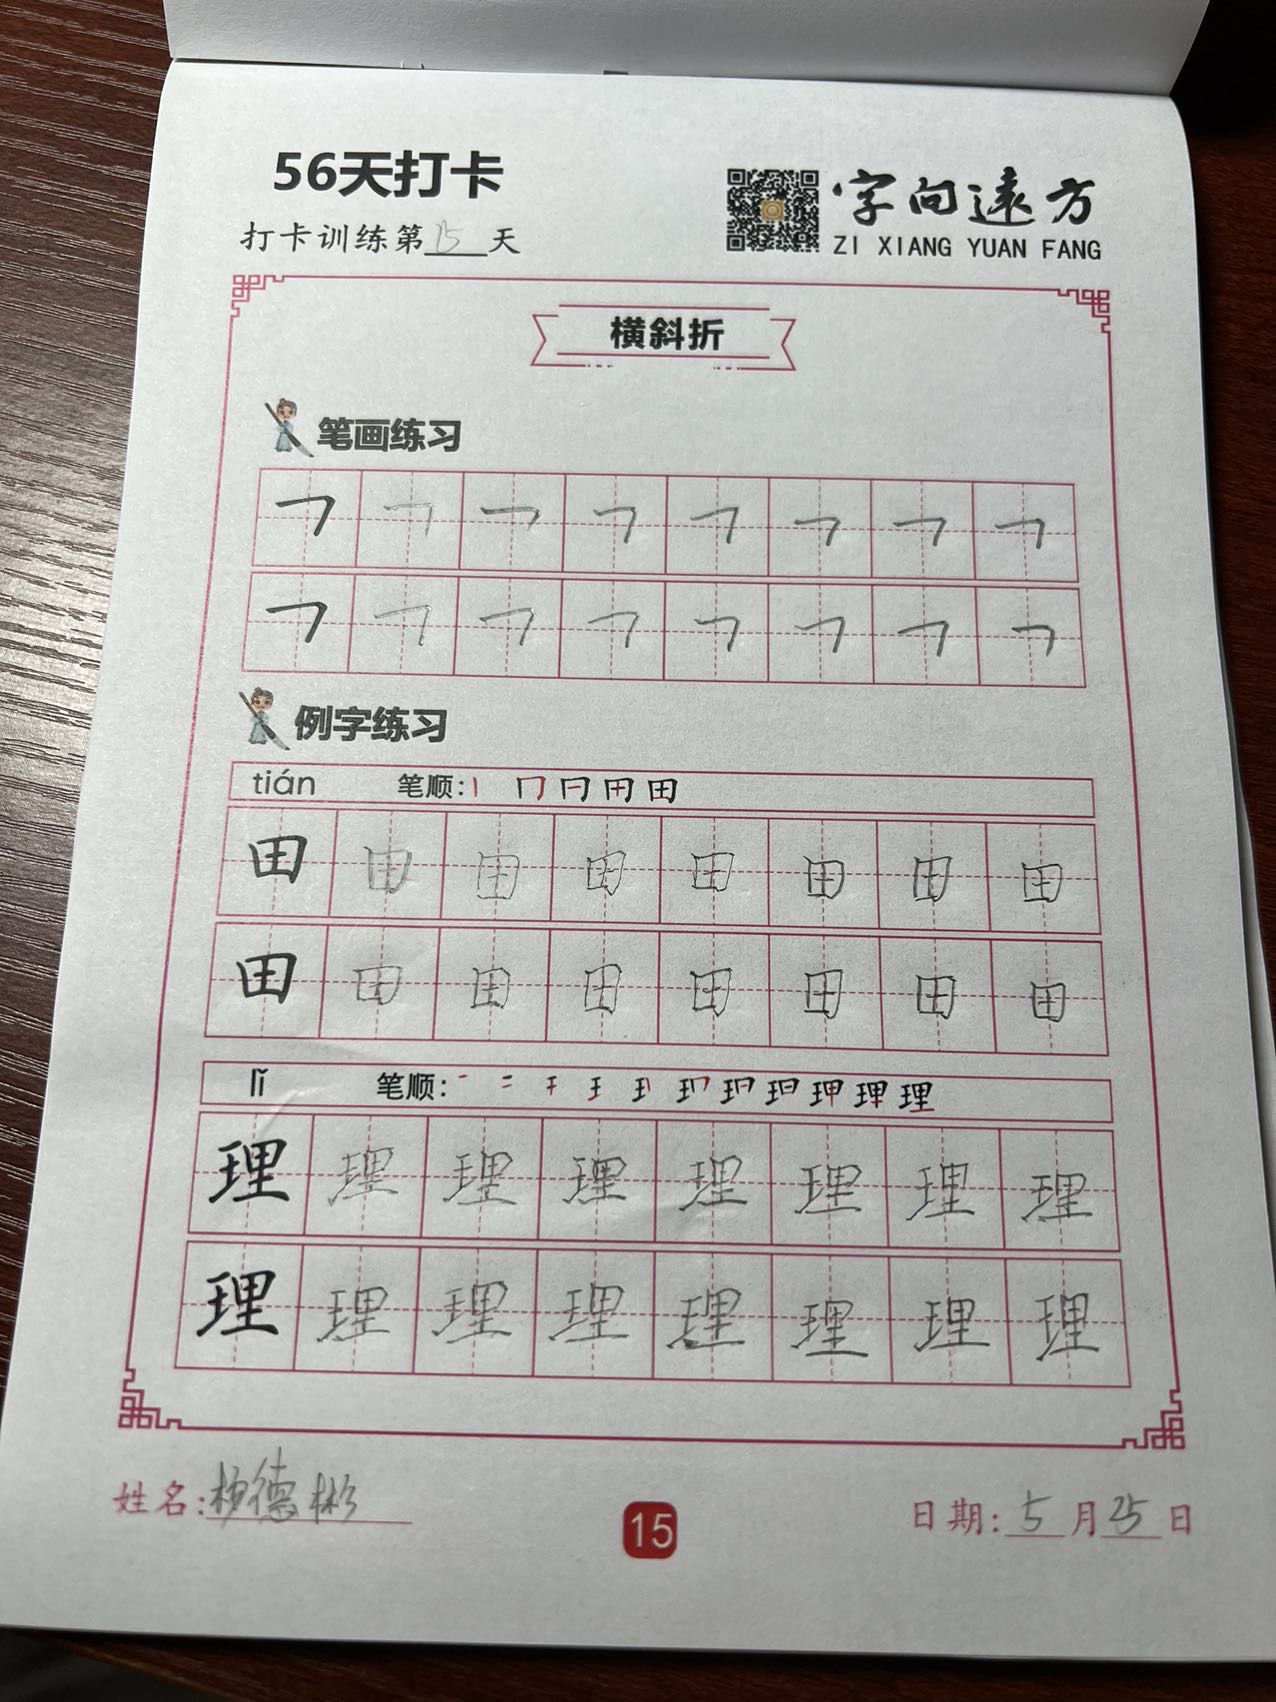 56天打卡
字向远方
打卡训练第15天
ZI XIANG YUAN FANG
横斜折
笔画练习
㇕ ㇕ ㇕ ㇕ ㇕ ㇕ ㇕ ㇕
㇕ ㇕ ㇕ ㇕ ㇕ ㇕ ㇕ ㇕
例字练习
tián 笔顺: 丨 冂 日 田 田
田 田 田 田 田 田 田 田
田 田 田 田 田 田 田 田
lǐ 笔顺:
理 理 理 理 理 理 理 理
理 理 理 理 理 理 理 理
姓名:杨德彬
15
日期:5月25日